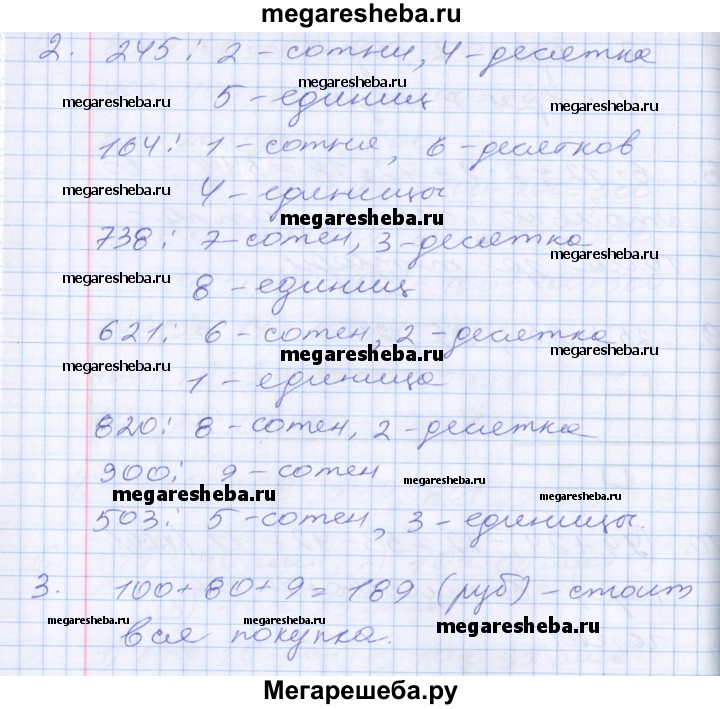 megaresheba.ru
2. 245: 2 - сотни, 4 - десятка
megaresheba.ru
megaresheba.ru megaresheba.ru
5 - единиц
164: 1 - сотня, 6 - десятков
megaresheba.ru
4 - единицы
megaresheba.ru
738: 7 - сотен, 3 - десятка
megaresheba.ru
megaresheba.ru
8 - единиц
621: 6 - сотен, 2 - десятка
megaresheba.ru megaresheba.ru
megaresheba.ru
1 - единица
820: 8 - сотен, 2 - десятка
900: 9 - сотен
megaresheba.ru
megaresheba.ru megaresheba.ru
503: 5 - сотен, 3 - единицы.
3. 100+80+9=189 (руб) - стоит
megaresheba.ru
вся покупка.
megaresheba.ru
Мегарешеба.ру